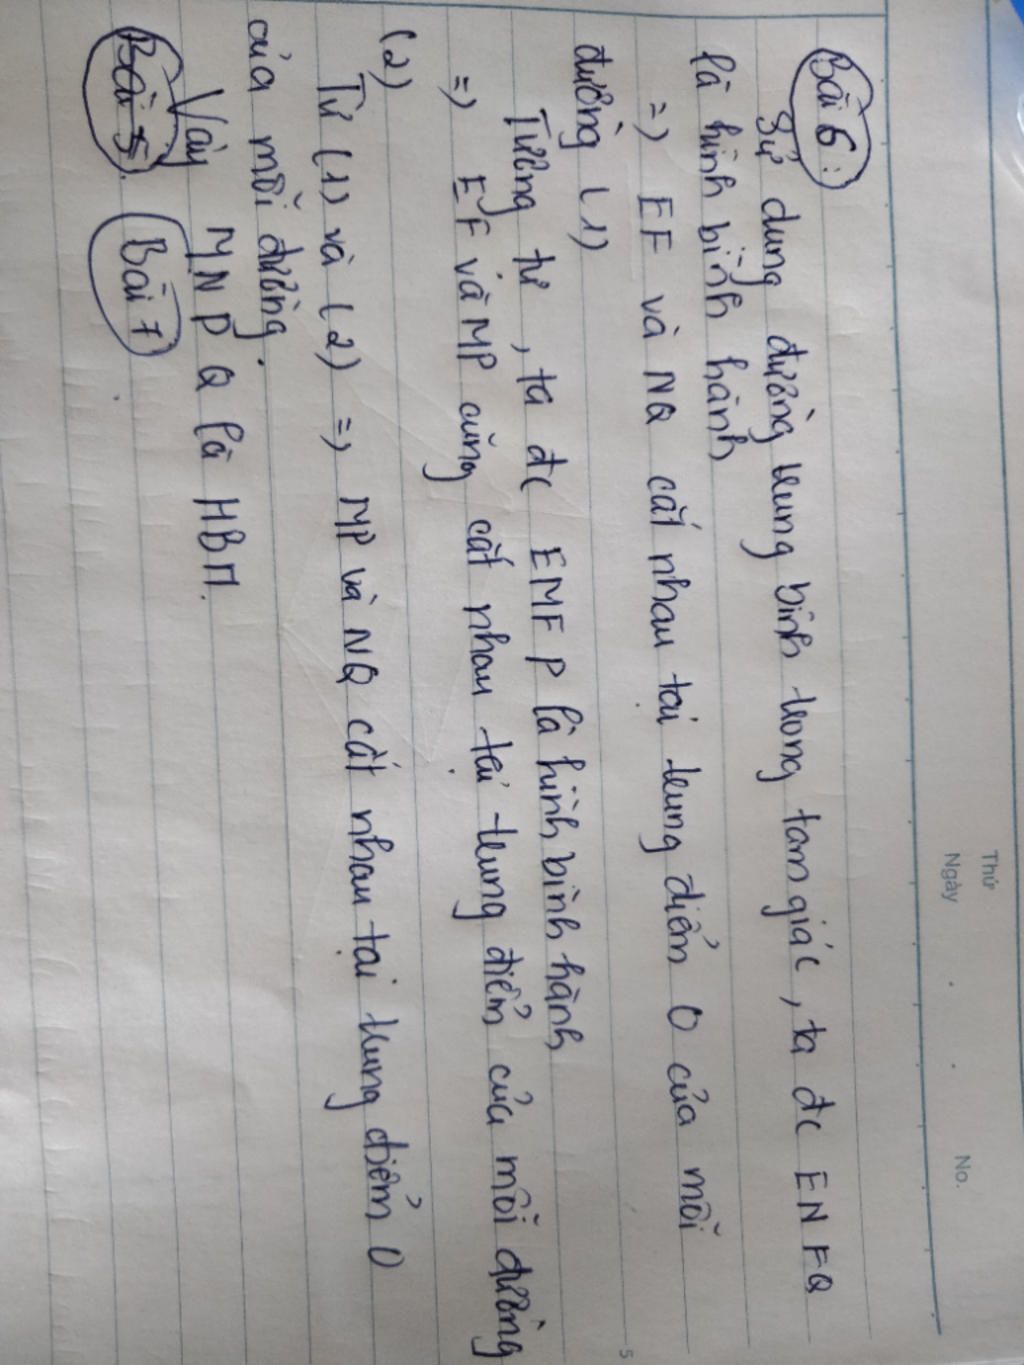 Thứ
Ngày
No.
Bài 6:
Sử dụng đường trung bình trong tam giác, ta đc ENFQ
là hình bình hành
=) EF và NQ cắt nhau tại trung điểm O của mỗi
đường (1)
Tương tự, ta đc EMFP là hình bình hành
=) EF và MP cũng cắt nhau tại trung điểm của mỗi đường
(2)
Từ (1) và (2) =) MP và NQ cắt nhau tại trung điểm O
của mỗi đường.
Vậy MNPQ là HBH.
Bài 5. Bài 7
5